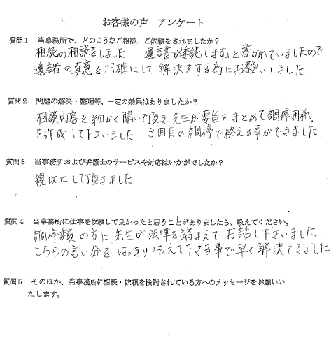 お客様の声 アンケート
質問1 当事務所で、どのようなご相談、ご依頼をされましたか?
相続の相談をしました 遺言が
遺言者の意思を 解決をする為にお願いしました
質問2 問題の解決・整理等、一定の効果はありましたか?
相談内容を細かく聞いて頂き まとめて調停用紙
を作成して下さいました 3回目の調停で終える事ができました
質問3 当事務所および弁護士のサービスや対応はいかがでしたか?
親切にして頂きました
質問4 当事務所に仕事を依頼して良かったと思うことがありましたら、教えてください。
調停の方に 法律を踏まえて お話し下さいました
こちらの言い分を はっきり伝えて下さる事で早く解決できました
質問5 そのほか、当事務所に相談・依頼を検討されている方へのメッセージをお願いい
たします。